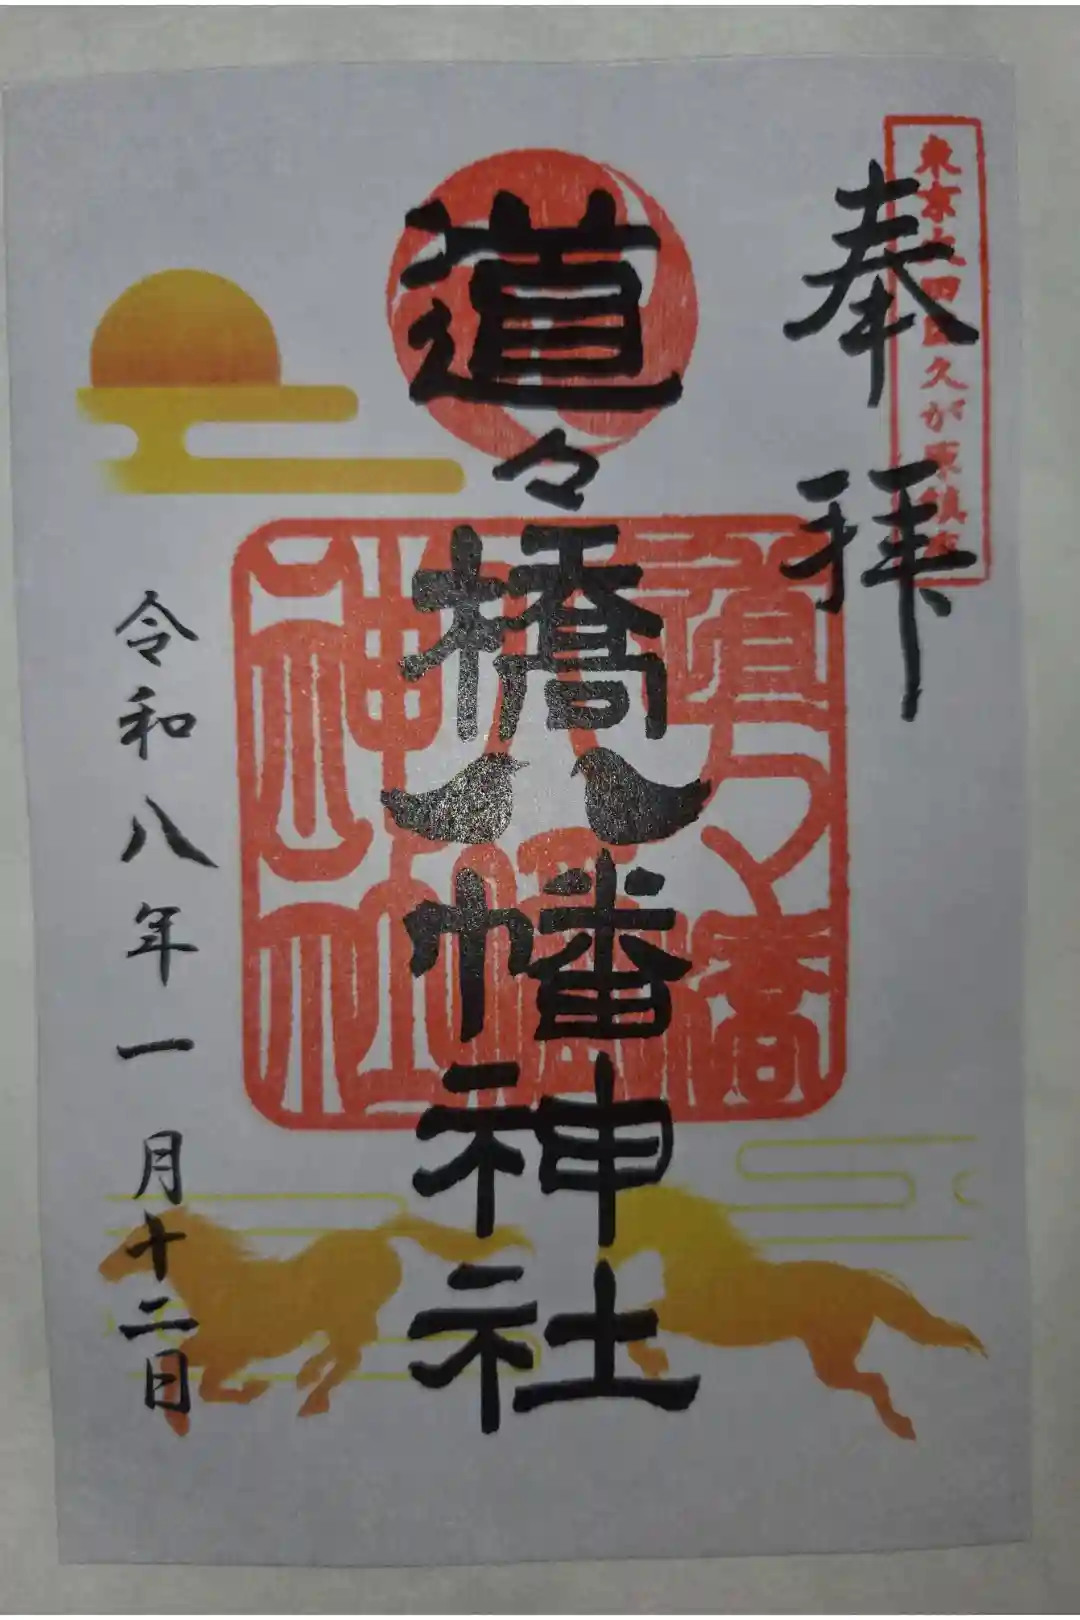 奉拝
東京大田区久が原鎮座
道々橋八幡神社
道々橋
八幡
神社
令和八年一月十二日